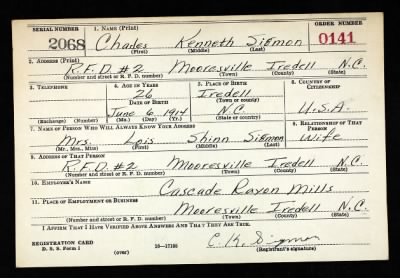 SERIAL NUMBER 1. NAME (Print) ORDER NUMBER
2068 Charles Kenneth Sigmon 0141
(First) (Middle) (Last)
2. ADDRESS (Print)
R.F.D. #2 Mooresville Iredell N.C.
(Number and street or R. F. D. number) (Town) (County) (State)
3. TELEPHONE 4. AGE IN YEARS 5. PLACE OF BIRTH 6. COUNTRY OF CITIZENSHIP
26 Iredell
DATE OF BIRTH (Town or county)
June 6 1914 N.C. U.S.A.
(Exchange) (Number) (Mo.) (Day) (Yr.) (State or country)
7. NAME OF PERSON WHO WILL ALWAYS KNOW YOUR ADDRESS 8. RELATIONSHIP OF THAT PERSON
Mrs. Lois Shinn Sigmon Wife
(Mr., Mrs., Miss) (First) (Middle) (Last)
9. ADDRESS OF THAT PERSON
R.F.D. #2 Mooresville Iredell N.C.
(Number and street or R. F. D. number) (Town) (County) (State)
10. EMPLOYER'S NAME
Cascade Rayon Mills
11. PLACE OF EMPLOYMENT OR BUSINESS
Mooresville Iredell N.C.
(Number and street or R. F. D. number) (Town) (County) (State)
I AFFIRM THAT I HAVE VERIFIED ABOVE ANSWERS AND THAT THEY ARE TRUE.
REGISTRATION CARD C. K. Sigmon
D. S. S. Form 1 (over) 16—17105 (Registrant's signature)